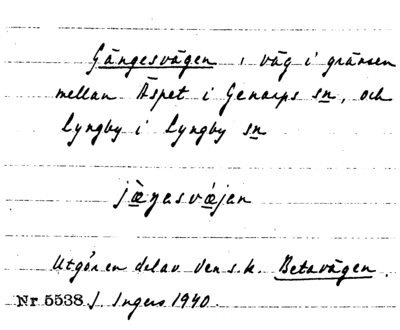 Gängesvägen, väg i gränsen
mellan Äspet i Genarps sn, och
Lyngby i Lyngby sn
jæ̀ŋasvæ̀jan
Utgör en del av den s.k. Betavägen.
Nr 5538 J. Ingers 1940.